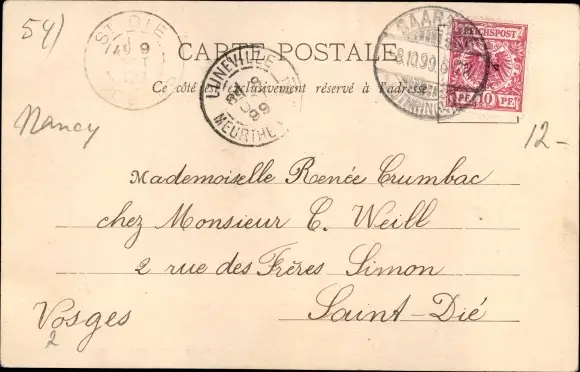 54)
ST DIÉ
CARTE POSTALE
Ce côté est exclusivement réservé à l'adresse
LUNÉVILLE
MEURTHE
8.10.99
REICHSPOST
PF 10 PF
Nancy
12-
Mademoiselle Renée Crumbac
chez Monsieur C. Weill
2 rue des Frères Simon
Saint-Dié
Vosges
2